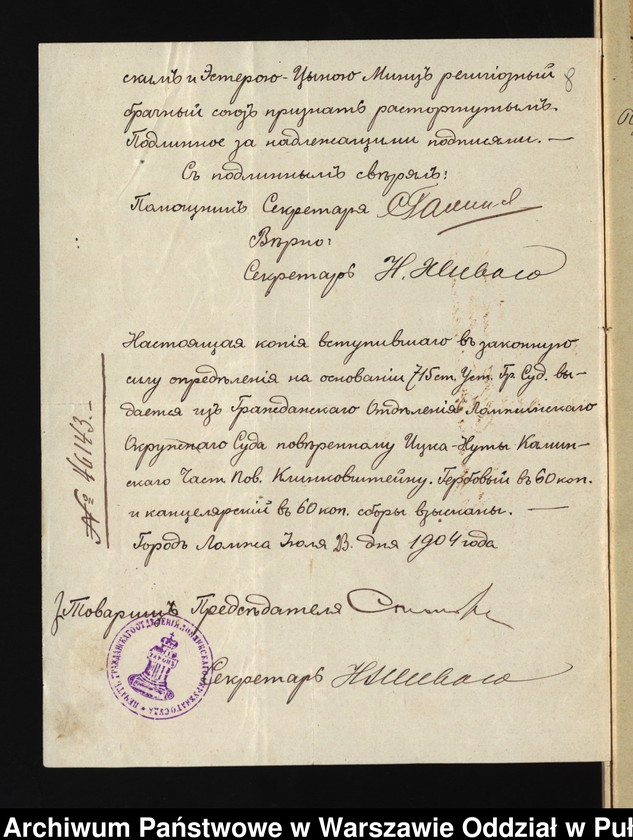 скимъ и Эстерою-Цыною Минцъ религіозный 8
брачный союз признать расторгнутымъ.
Подлинное за надлежащими подписями. —
Съ подлиннымъ свѣрялъ:
Помощникъ Секретаря
Вѣрно:
Секретарь Н.
Настоящая копія вступившаго въ законную
силу опредѣленія на основаніи 715 ст. Уст. Гр. Суд. вы-
дается изъ Гражданскаго Отдѣленія Ломжинскаго
Окружнаго Суда повѣренному Ицка-Нуты Калин-
скаго Част. Пов. Клинковштейну. Гербовый въ 60 коп.
и канцелярскій въ 60 коп. сборы взысканы. —
Городъ Ломжа Іюля 23 дня 1904 года
№ 46143. —
Товарищъ Предсѣдателя
Секретарь
ПЕЧАТЬ ГРАЖДАНСКАГО ОТДѢЛЕНІЯ ЛОМЖИНСКАГО ОКРУЖНАГО СУДА
ЗАКОНЪ
Archiwum Państwowe w Warszawie Oddział w Puł